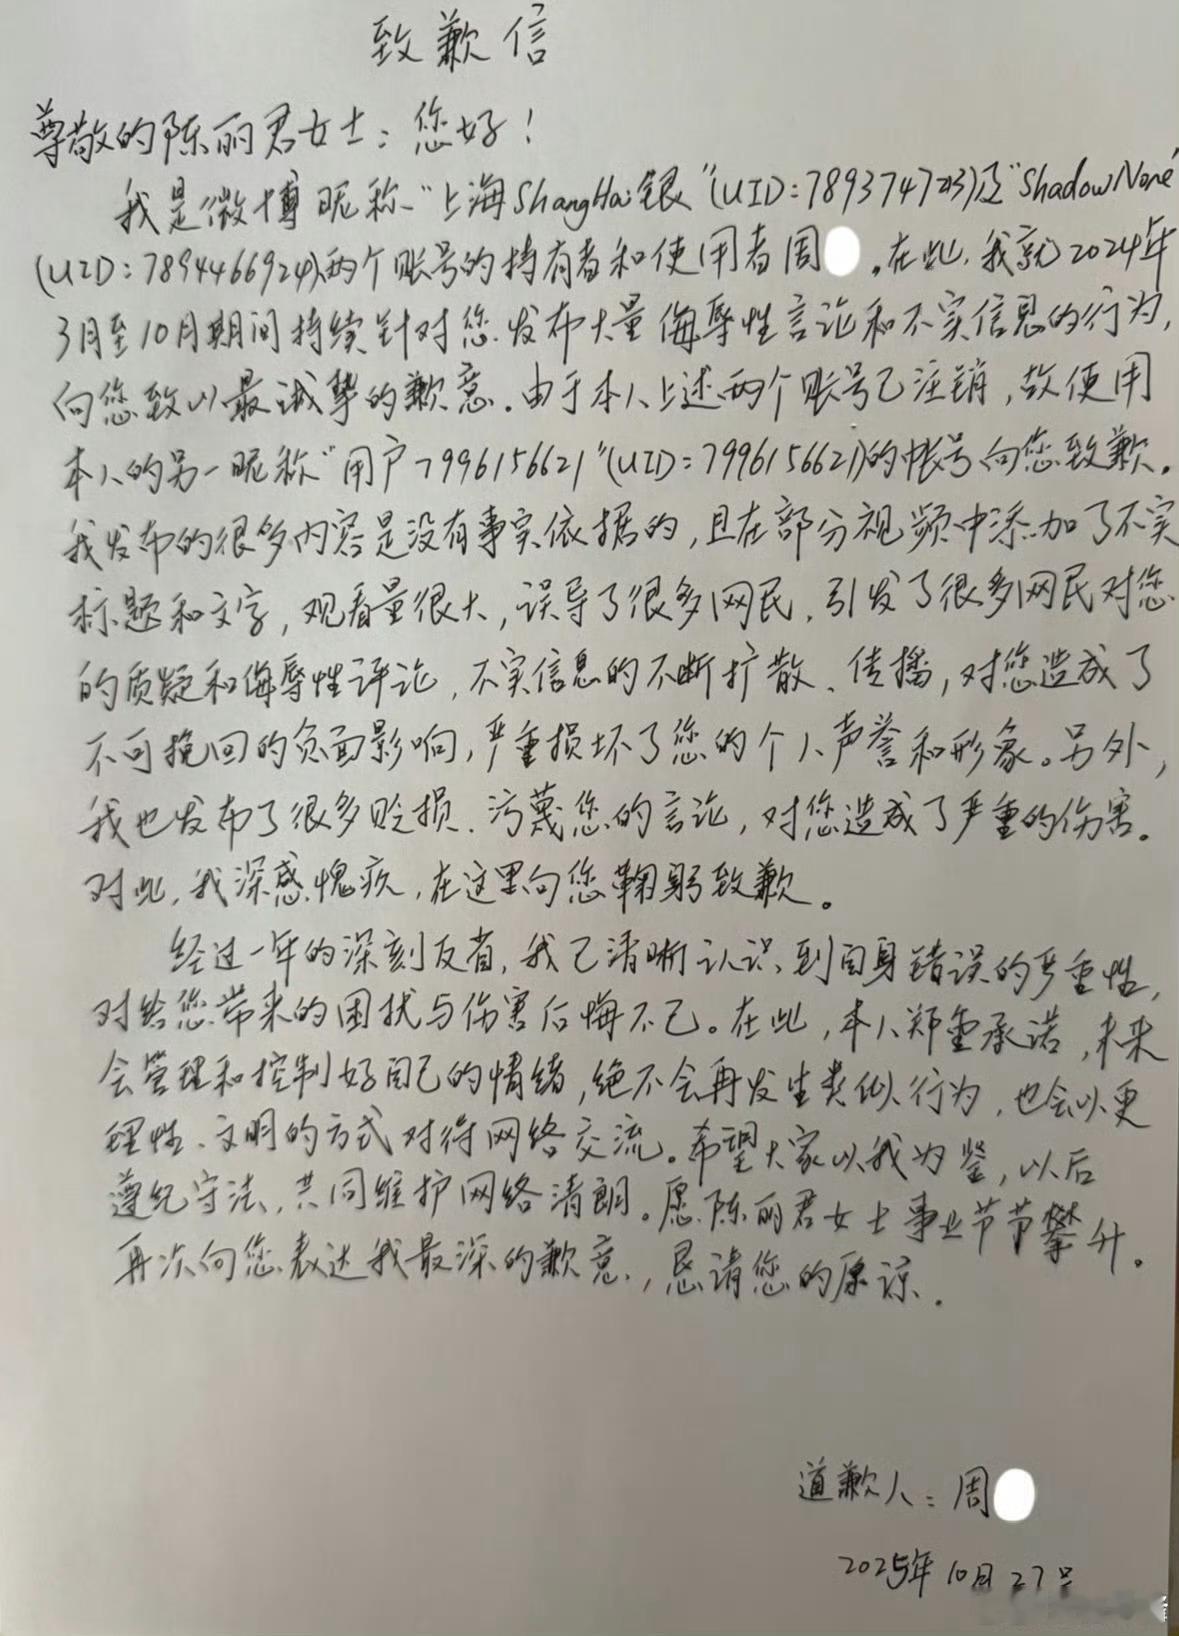 致歉信
尊敬的陈丽君女士：您好！
我是微博昵称"上海ShangHai银"(UID:7893747213)及"ShadowNone"
(UID:7894466924)两个账号的持有者和使用者周 ，在此，我就2024年
3月至10月期间持续针对您发布大量侮辱性言论和不实信息的行为，
向您致以最诚挚的歉意。由于本人上述两个账号已注销，故使用
本人的另一昵称"用户7996156621"(UID:7996156621)的帐号向您致歉。
我发布的很多内容是没有事实依据的，且在部分视频中添加了不实
标题和文字，观看量很大，误导了很多网民，引发了很多网民对您
的质疑和侮辱性评论，不实信息的不断扩散、传播，对您造成了
不可挽回的负面影响，严重损坏了您的个人声誉和形象。另外，
我也发布了很多贬损、污蔑您的言论，对您造成了严重的伤害。
对此，我深感愧疚，在这里向您鞠躬致歉。
经过一年的深刻反省，我已清晰认识到自身错误的严重性，
对给您带来的困扰与伤害后悔不已。在此，本人郑重承诺，未来
会管理和控制好自己的情绪，绝不会再发生类似行为，也会以更
理性、文明的方式对待网络交流。希望大家以我为鉴，以后
遵纪守法，共同维护网络清朗。愿陈丽君女士事业节节攀升。
再次向您表达我最深的歉意，恳请您的原谅。
道歉人：周
2025年10月27日